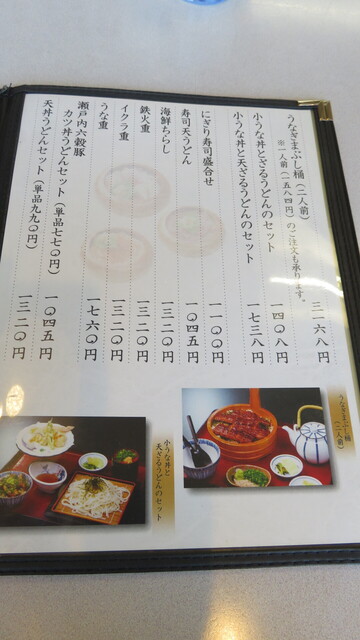 うなぎまぶし桶（二人前） 三一六八円
※一人前（一五八四円）のご注文も承ります。
小うな丼とざるうどんのセット 一四〇八円
小うな丼と天ざるうどんのセット 一七三八円
にぎり寿司盛合せ 一一〇〇円
寿司天うどん 一〇四五円
海鮮ちらし 一三二〇円
鉄火重 一三二〇円
イクラ重 一三二〇円
うな重 一七六〇円
瀬戸内六穀豚
カツ丼うどんセット（単品七七〇円） 一〇四五円
天丼うどんセット（単品九九〇円） 一三二〇円
うなぎまぶし桶
（二人前）
小うな丼と
天ざるうどんのセット